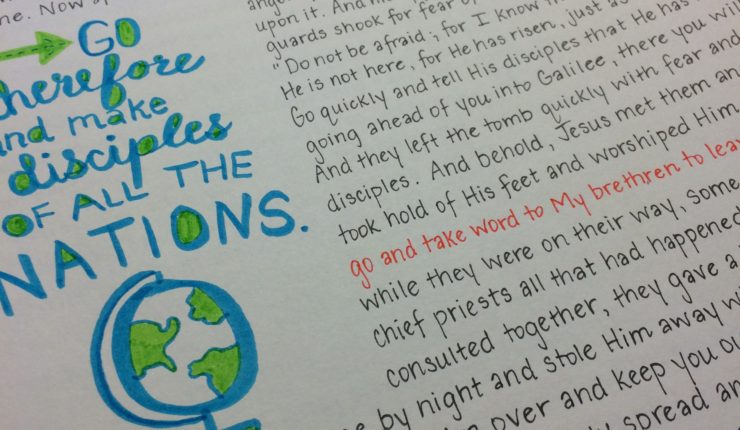 ne. Now
GO
therefore
and make
disciples
OF ALL THE
NATIONS.
upon it. And
guards shook for fear of
"Do not be afraid; for I know
He is not here, for He has risen, just as
Go quickly and tell His disciples that He has
going ahead of you into Galilee, there you will
And they left the tomb quickly with fear and
disciples. And behold, Jesus met them an
took hold of His feet and worshiped Him
go and take word to My brethren to leav
while they were on their way, some
chief priests all that had happened
consulted together, they gave a
by night and stole Him away
over and keep you ou
spread an